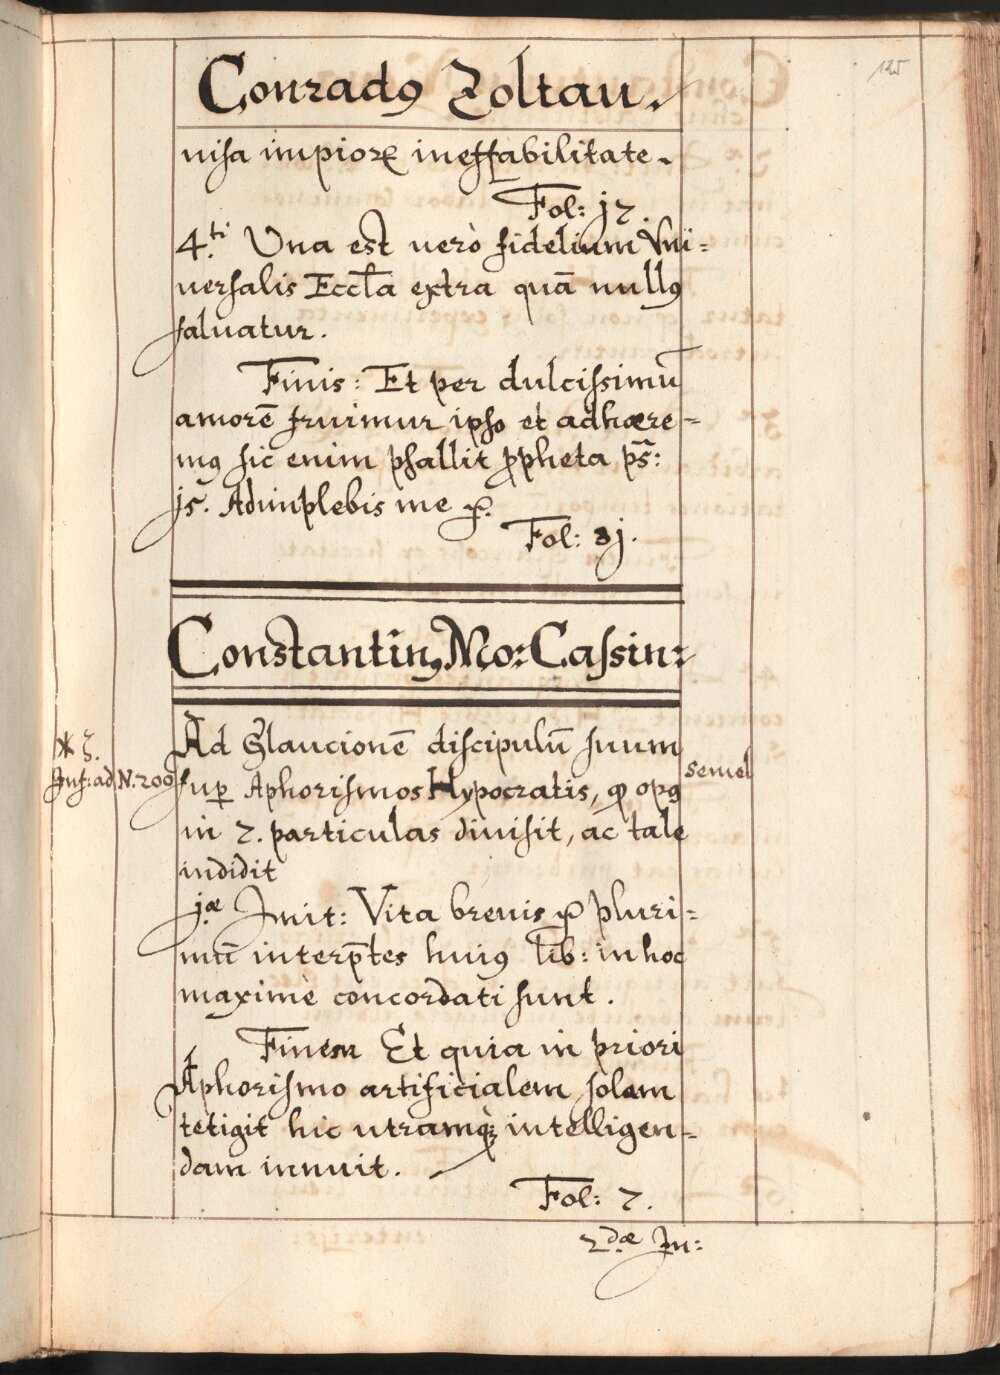 125
Conradꝯ Zoltau.
nisa impiorꝝ ineffabilitate.
Fol: j7.
4.ti Una est verò fidelium Vni=
versalis Eccl̃a extra quā nullꝯ
salvatur.
Finis: Et per dulcissimū
amorē fruimur ipso et adhære=
mꝯ sic enim psallit ꝓpheta ps̃:
j5. Adimplebis me
Fol: 3j.
Constantinꝯ Mo: Cassin:
Ad Glaucionē discipulū suum
Inf: ad N. 200 suꝑ Aphorismos Hypocratis, opꝯ semel
in 7. particulas divisit, ac tale
indidit
j.æ Init: Vita brevis pluri=
mū interp̄tes huiꝯ lib: in hoc
maximè concordati sunt.
Finem Et quia in priori
Aphorismo artificialem solam
tetigit hic utramqꝫ intelligen=
dam innuit.
Fol: 7.
2.dæ In: